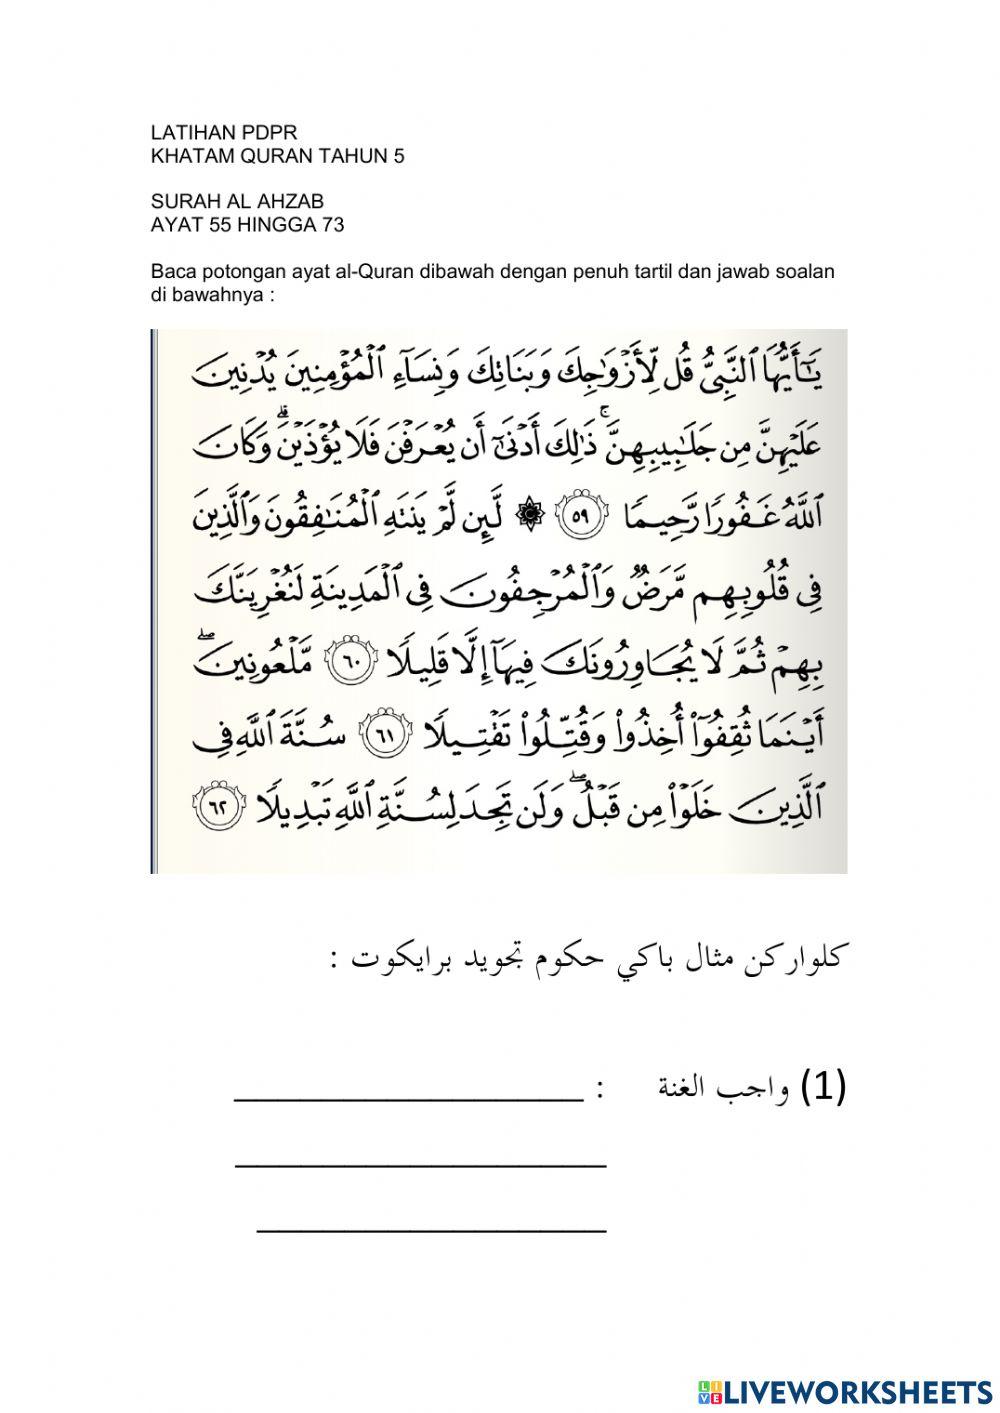 LATIHAN PDPR
KHATAM QURAN TAHUN 5
SURAH AL AHZAB
AYAT 55 HINGGA 73
Baca potongan ayat al-Quran dibawah dengan penuh tartil dan jawab soalan
di bawahnya :
يَـٰٓأَيُّهَا ٱلنَّبِىُّ قُل لِّأَزْوَٰجِكَ وَبَنَاتِكَ وَنِسَآءِ ٱلْمُؤْمِنِينَ يُدْنِينَ
عَلَيْهِنَّ مِن جَلَـٰبِيبِهِنَّ ۚ ذَٰلِكَ أَدْنَىٰٓ أَن يُعْرَفْنَ فَلَا يُؤْذَيْنَ ۗ وَكَانَ
ٱللَّهُ غَفُورًا رَّحِيمًا ٥٩ ۞ لَّئِن لَّمْ يَنتَهِ ٱلْمُنَـٰفِقُونَ وَٱلَّذِينَ
فِى قُلُوبِهِم مَّرَضٌ وَٱلْمُرْجِفُونَ فِى ٱلْمَدِينَةِ لَنُغْرِيَنَّكَ
بِهِمْ ثُمَّ لَا يُجَاوِرُونَكَ فِيهَآ إِلَّا قَلِيلًا ٦٠ مَّلْعُونِينَ ۖ
أَيْنَمَا ثُقِفُوٓا۟ أُخِذُوا۟ وَقُتِّلُوا۟ تَقْتِيلًا ٦١ سُنَّةَ ٱللَّهِ فِى
ٱلَّذِينَ خَلَوْا۟ مِن قَبْلُ ۖ وَلَن تَجِدَ لِسُنَّةِ ٱللَّهِ تَبْدِيلًا ٦٢
كلواركن مثال باكي حكوم تجويد برايكوت :
(1) واجب الغنة : ________________
________________
________________
LIVEWORKSHEETS